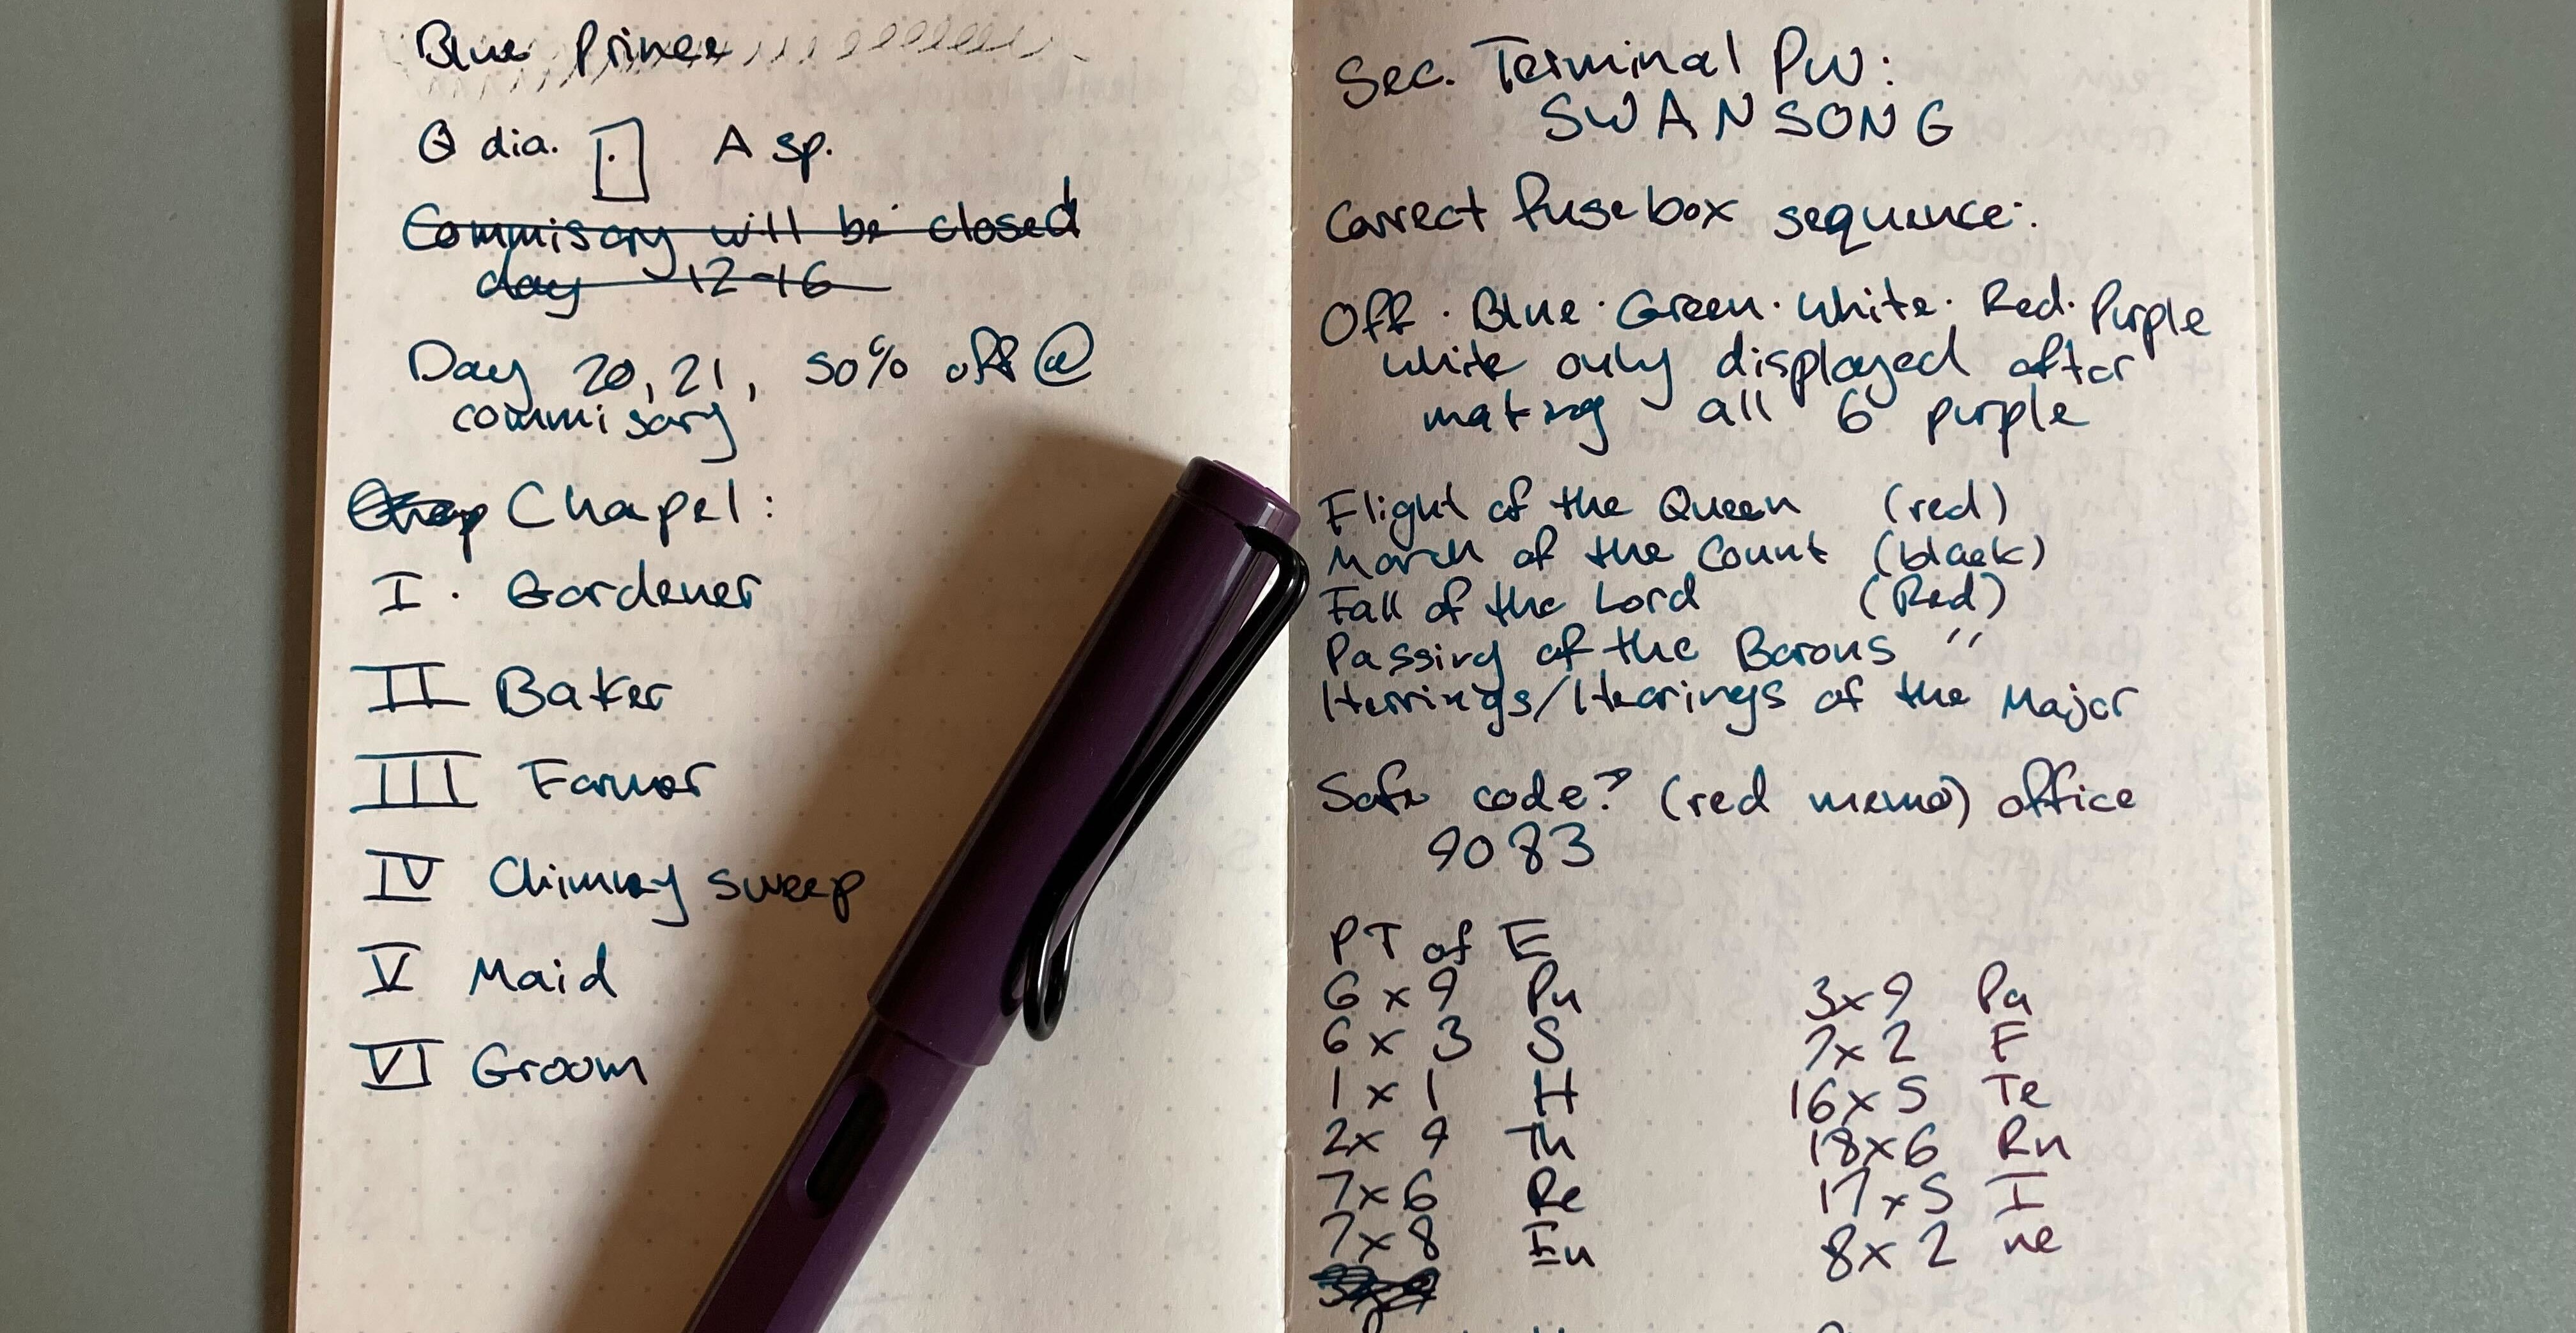 Blue Prince
Q dia. A sp.
Commisary will be closed
day 12-16
Day 20, 21, 50% off @
commisary
Chapel:
I. Gardener
II Baker
III Farmer
IV Chimney sweep
V Maid
VI Groom
Sec. Terminal PW:
SWANSONG
Correct fusebox sequence:
Off · Blue · Green · White · Red · Purple
white only displayed after
making all 6 purple
Flight of the Queen (red)
March of the Count (black)
Fall of the Lord (Red)
Passing of the Barons "
Herrings/Hearings of the Major
Safe code? (red memo) office
9083
PT of E
6 x 9 Pu 3x9 Pa
6 x 3 S 7x2 F
1 x 1 H 16x5 Te
2x 9 Th 18x6 Rn
7x6 Re 17x5 I
7x8 Eu 8x2 ne